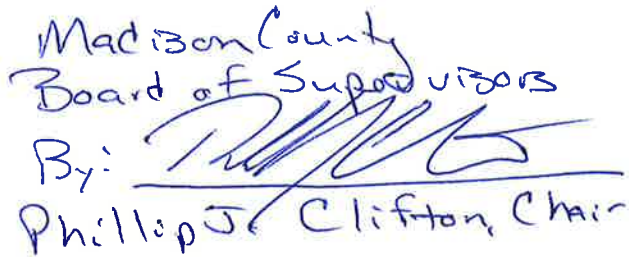 Madison County
Board of Supervisors
By:
Phillip J. Clifton, Chair